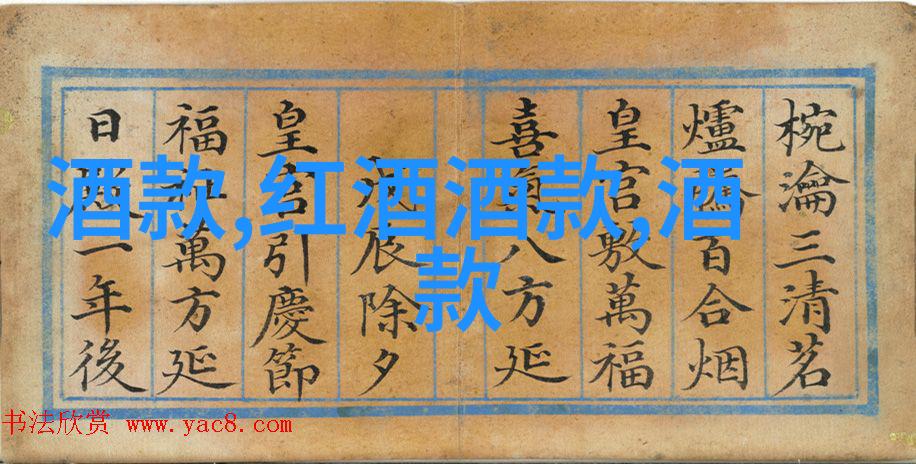 椀瀹三清茗
爐百合烟
皇宫敷萬福
喜八方延
辰除夕
皇宫引慶節
福萬方延
日一年後
酒款,红酒酒款,酒
款
书法欣赏 www.yac8.com